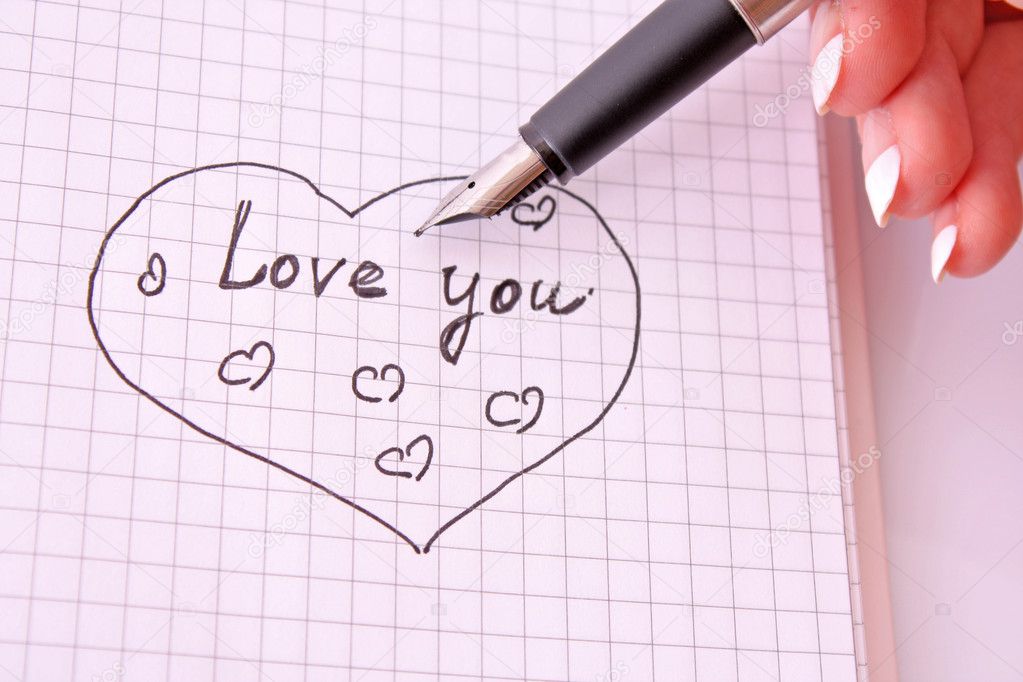 Love you
depositphotos